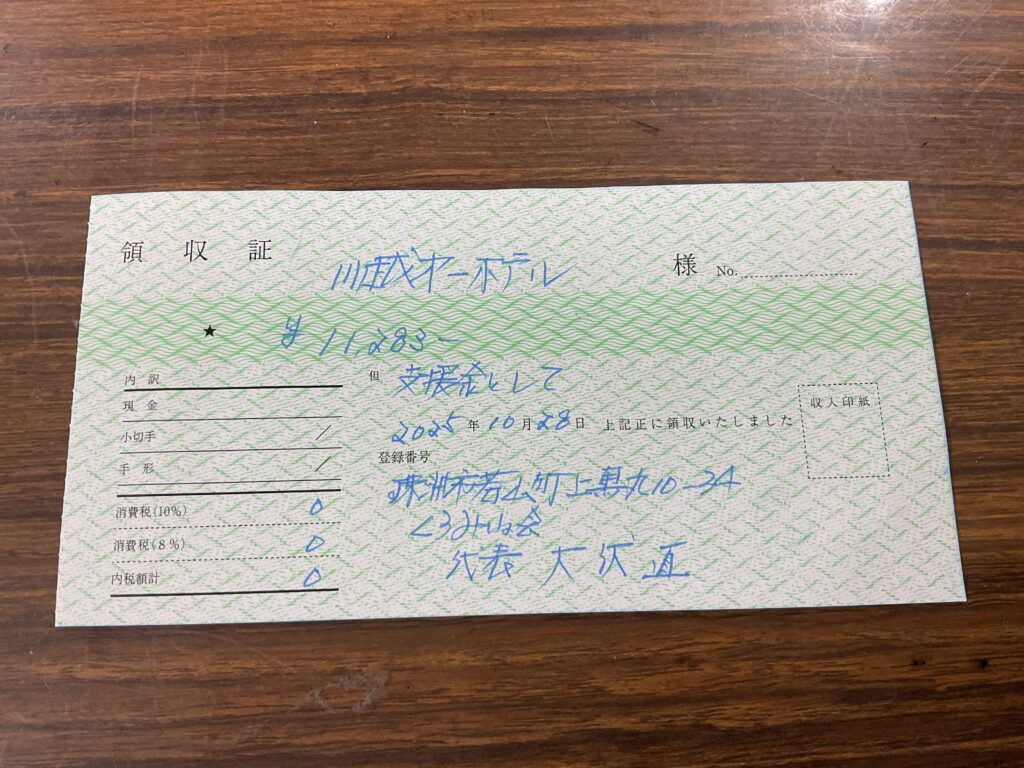 領収証
川越ｵｰﾙﾎﾃﾙ 様 No.
★ ¥11,283-
但 支援金として
2025年10月28日 上記正に領収いたしました
収入印紙
内訳
現金
小切手 /
手形 /
消費税(10%) 0
消費税(8%) 0
内税額計 0
登録番号
珠洲市若山町上黒丸10-34
くろみね会
代表 大沢 直